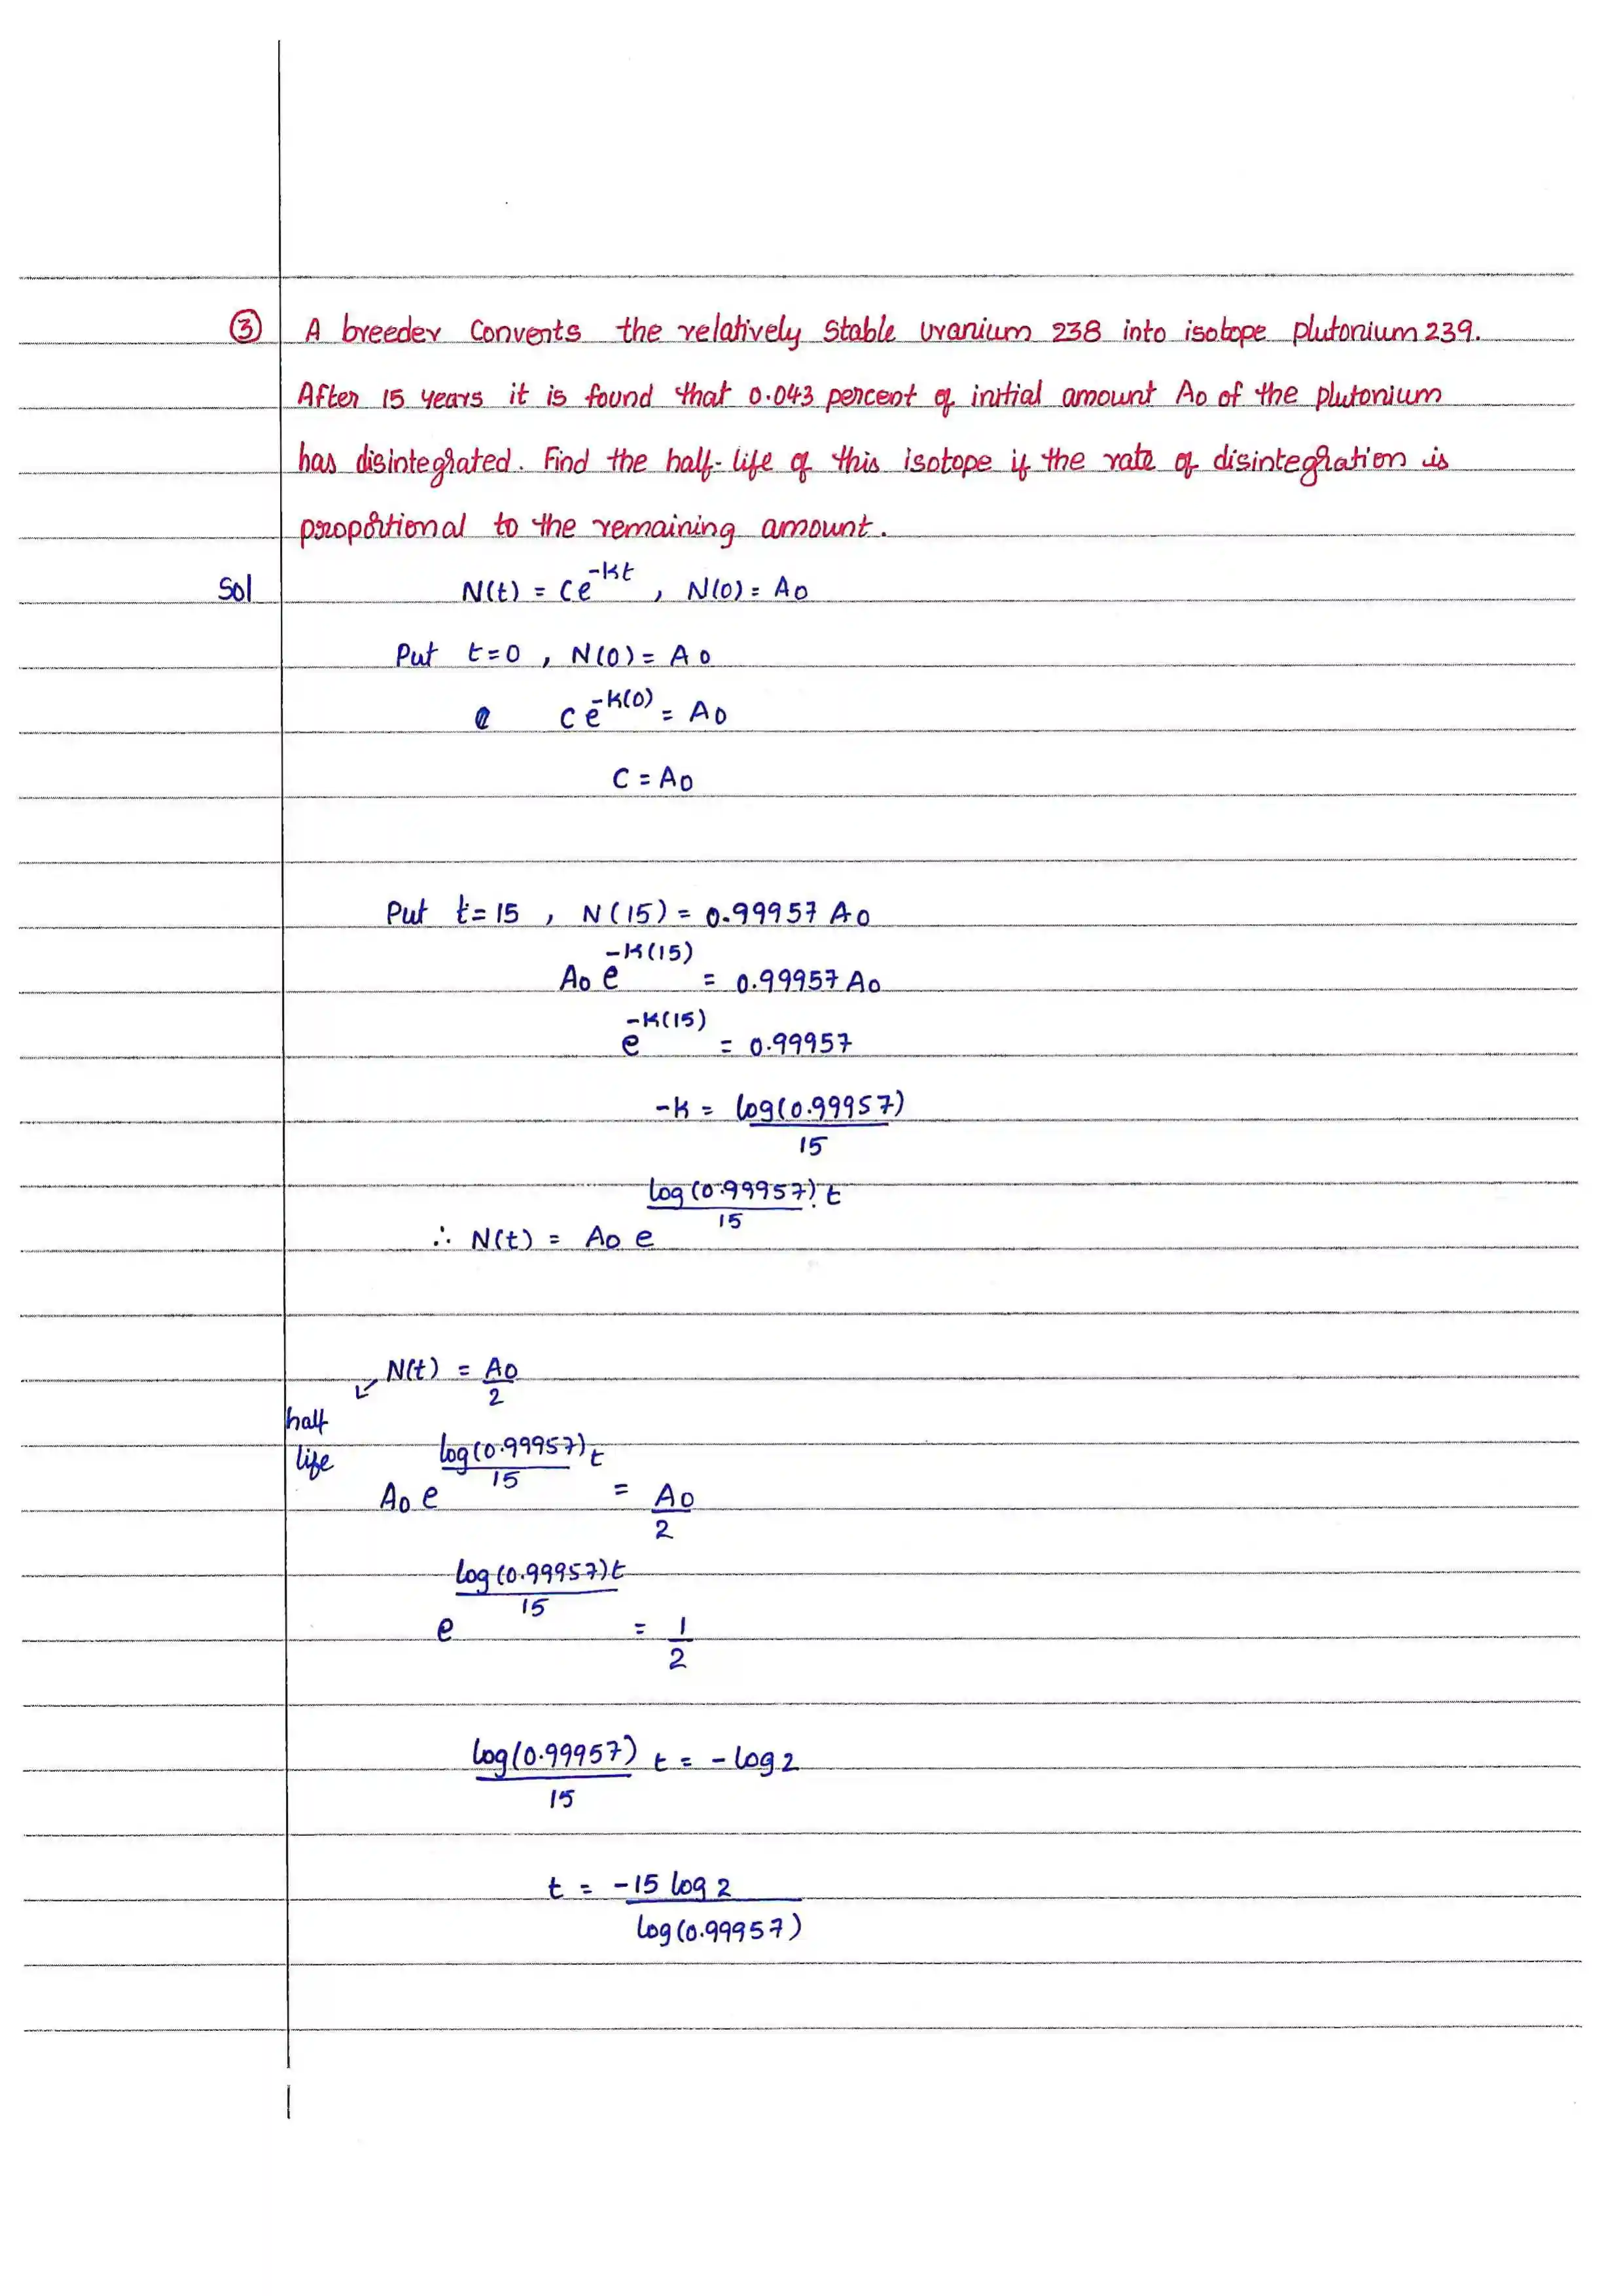 ③ A breeder Converts the relatively Stable Uranium 238 into isotope plutonium 239.
After 15 years it is found that 0.043 percent of initial amount A0 of the plutonium
has disintegrated. Find the half-life of this isotope if the rate of disintegration is
proportional to the remaining amount.
Sol N(t) = Ce^-kt , N(0) = A0
Put t=0 , N(0) = A0
Ce^-k(0) = A0
C = A0
Put t=15 , N(15) = 0.99957 A0
A0 e^-k(15) = 0.99957 A0
e^-k(15) = 0.99957
-k = log(0.99957)/15
∴ N(t) = A0 e^log(0.99957)/15 . t
N(t) = A0/2
half
life
A0 e^log(0.99957)/15 t = A0/2
e^log(0.99957)t/15 = 1/2
log(0.99957)/15 t = -log2
t = -15 log 2/log(0.99957)